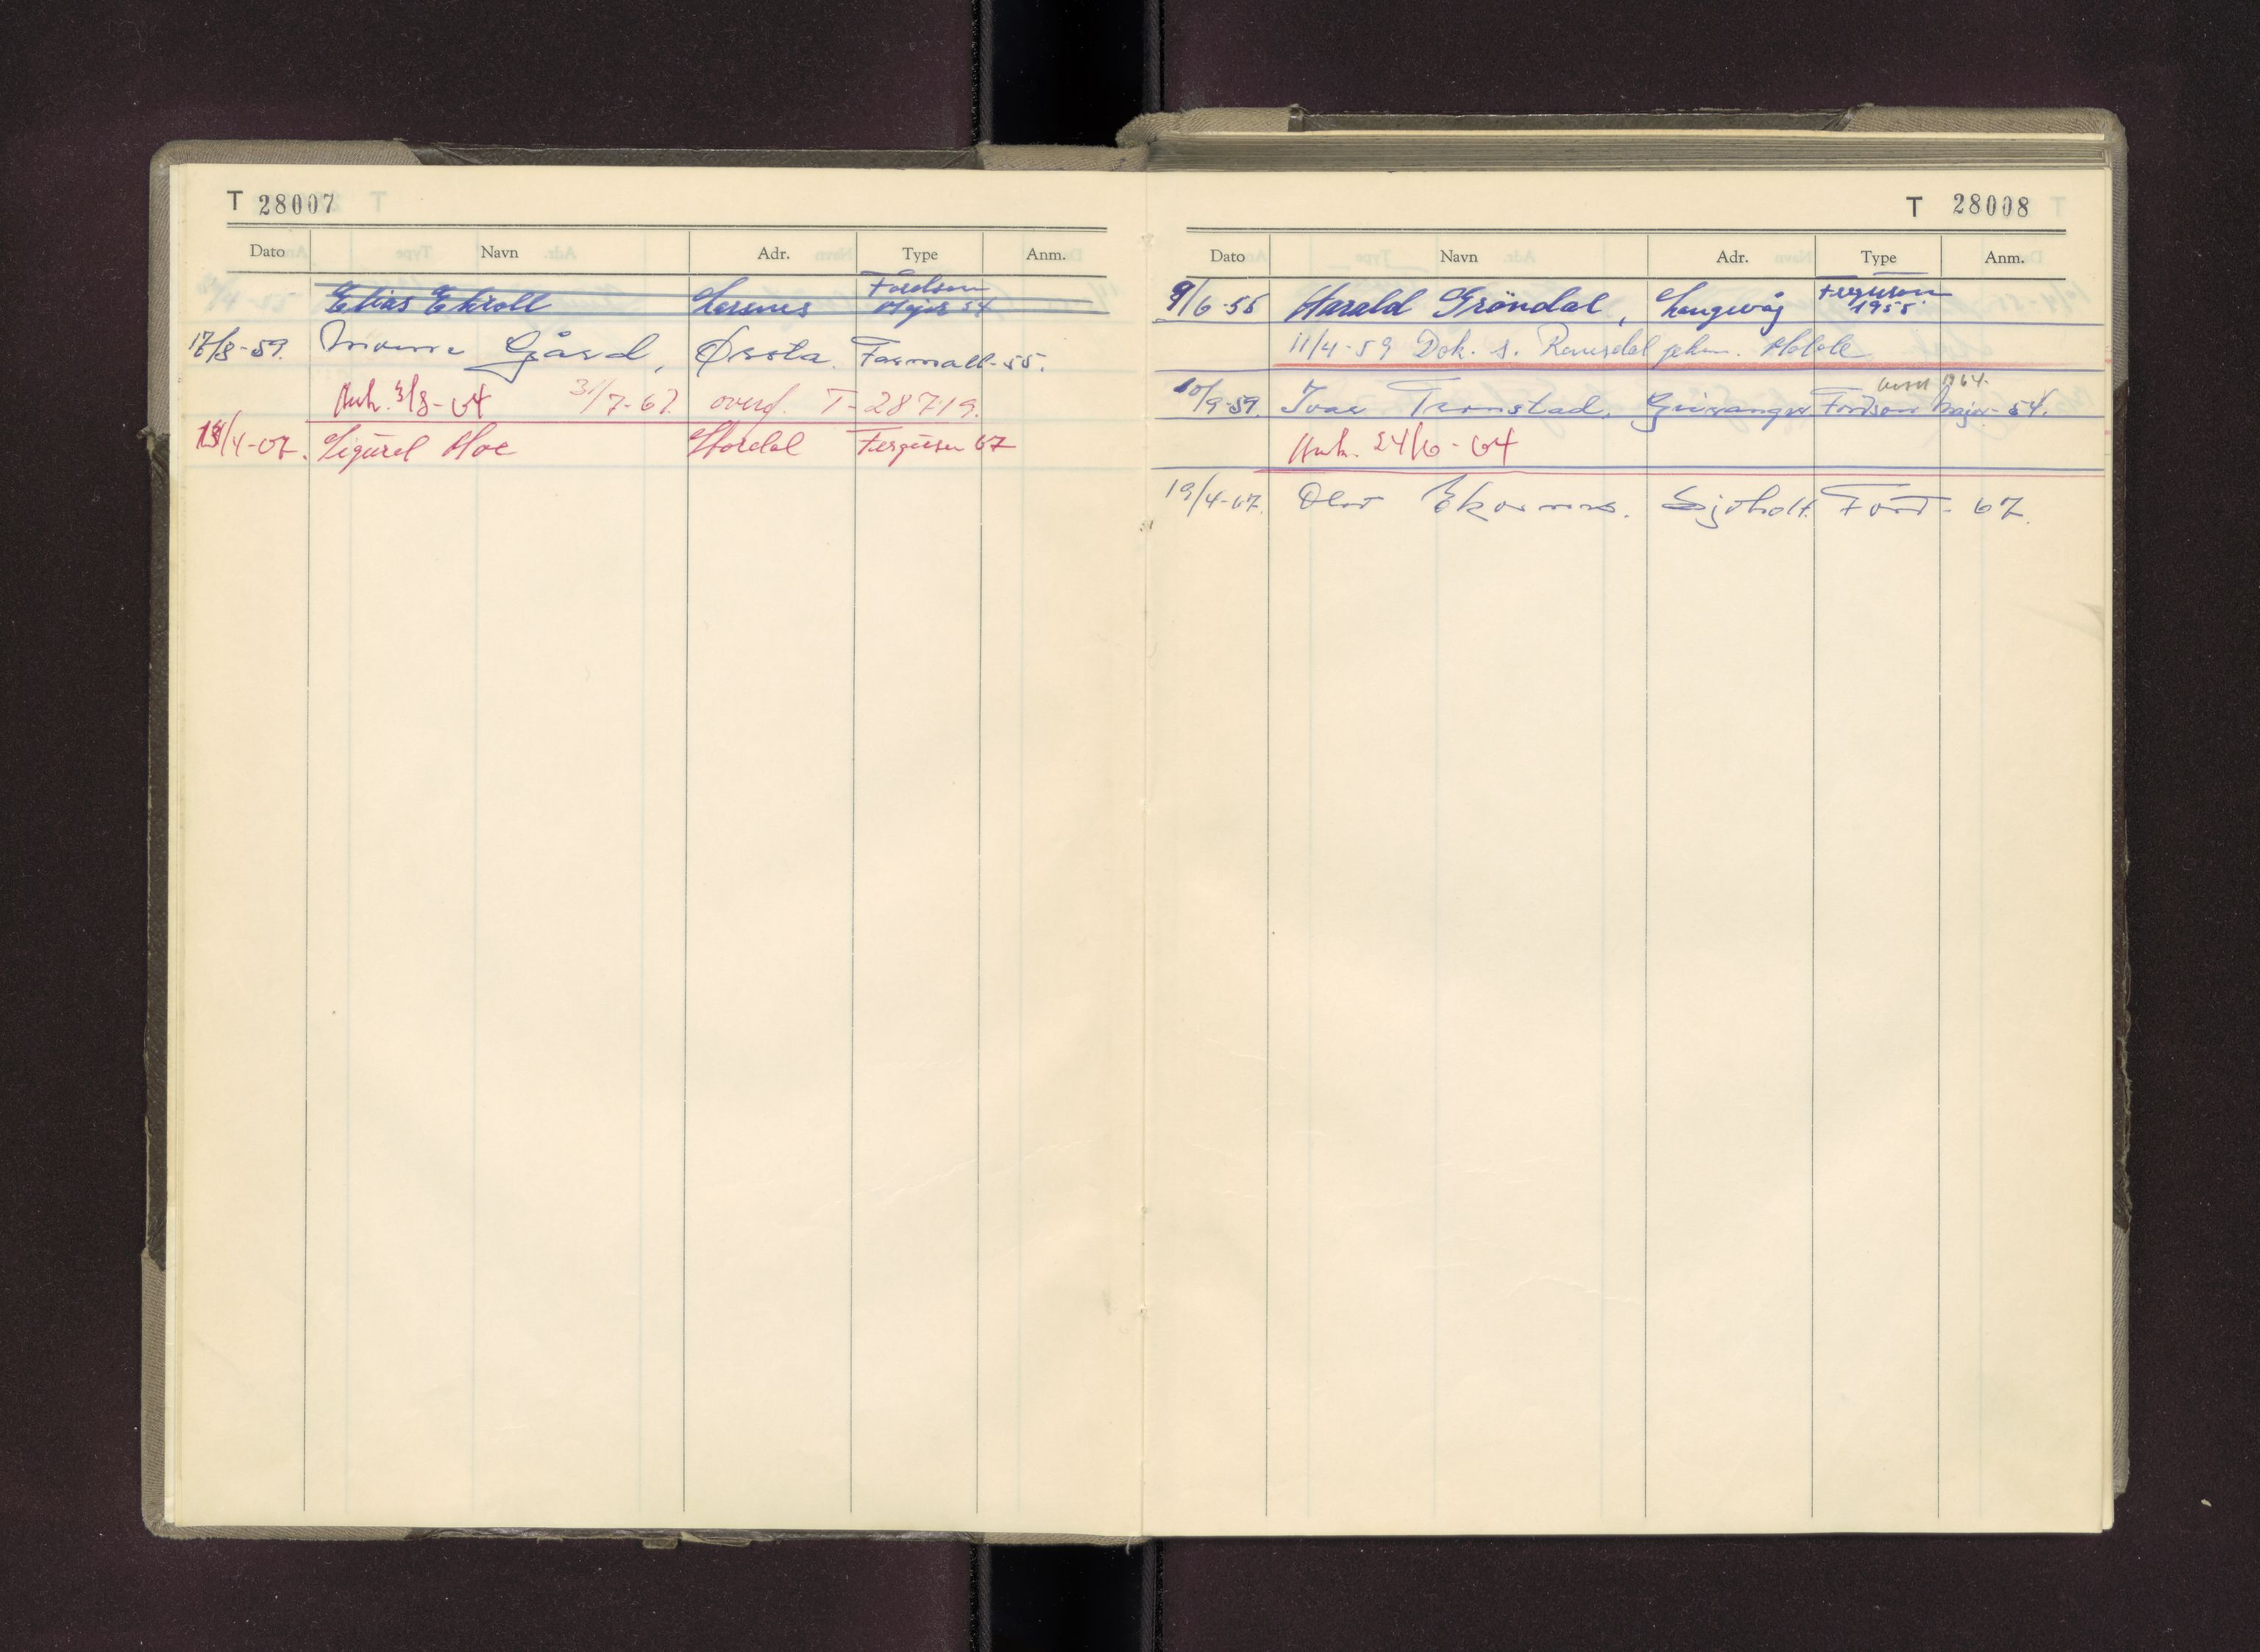 T 28007
Dato Navn Adr. Type Anm.
Fordson
Elias Ekroll Larsnes Major 54
17/8-59. Gård, Ørsta. Farmall-55.
Avh. 3/8-64 31/7-67 overf. T-28719.
/4-67. Sigurd Moe Stordal Ferguson 67
T 28008
Dato Navn Adr. Type Anm.
9/6-55 Harald Gröndal, Langevåg Ferguson
1955
11/4-59 Dok. s. Romsdal Molde
1964.
10/9-59. Ivar Tronstad. Geiranger Fordson Major-54.
Avh. 24/6-64
19/4-67. Olav Ekornes. Sjøholt. Ford-67.